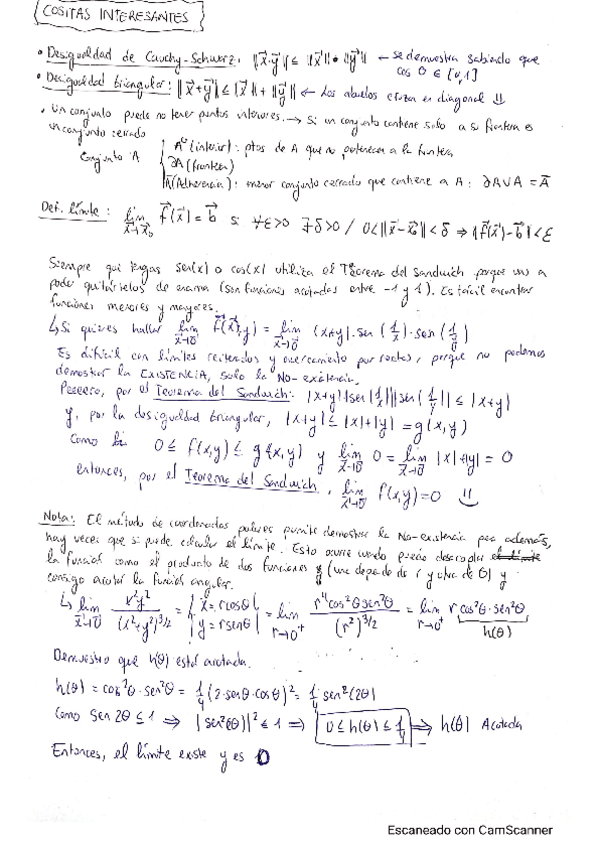 COSITAS INTERESANTES
• Desigualdad de Cauchy-Schwarz: ||x⃗·y⃗|| ≤ ||x⃗||•||y⃗|| ← se demuestra sabiendo que
cos θ ∈ [0,1]
• Desigualdad triangular: ||x⃗+y⃗|| ≤ ||x⃗|| + ||y⃗|| ← Los abuelos cruzan en diagonal
• Un conjunto puede no tener puntos interiores. → Si un conjunto contiene solo a su frontera es
un conjunto cerrado
Conjunto A
A° (interior): ptos de A que no pertenecen a la frontera
∂A (frontera)
A̅ (Adherencia): menor conjunto cerrado que contiene a A: ∂A∪A = A̅
Def. límite: lim x⃗→x⃗₀ f⃗(x⃗) = b⃗ si ∀ε>0 ∃δ>0 / 0<||x⃗-x⃗₀||<δ ⇒ ||f⃗(x⃗)-b⃗||<ε
Siempre que tengas sen(x) o cos(x) utiliza el Teorema del Sandwich porque vas a
poder quitártelos de encima (son funciones acotadas entre -1 y 1). Es fácil encontrar
funciones menores y mayores.
↳ Si quieres hallar lim x⃗→0⃗ f(x,y) = lim x⃗→0⃗ (x+y)·sen(1/x)·sen(1/y)
Es difícil con límites reiterados y acercamiento por rectas, porque no podemos
demostrar la EXISTENCIA, solo la No-existencia.
Peeeero, por el Teorema del Sandwich: |x+y||sen(1/x)||sen(1/y)| ≤ |x+y|
y, por la desigualdad triangular, |x+y| ≤ |x|+|y| = g(x,y)
Como 0 ≤ f(x,y) ≤ g(x,y) y lim x⃗→0⃗ 0 = lim x⃗→0⃗ |x|+|y| = 0
entonces, por el Teorema del Sandwich, lim x⃗→0⃗ f(x,y)=0
Nota: El método de coordenadas polares permite demostrar la No-existencia pero además,
hay veces que si puede calcular el límite. Esto ocurre cuando puedo desacoplar
la función como el producto de dos funciones (una depende de r y otra de θ) y
consigo acotar la función angular.
↳ lim x⃗→0⃗ x²y²/(x²+y²)^3/2 = {x = r cosθ, y = r senθ} = lim r→0⁺ r⁴cos²θ sen²θ/(r²)^3/2 = lim r→0⁺ r cos²θ·sen²θ
h(θ)
Demuestro que h(θ) está acotada.
h(θ) = cos²θ·sen²θ = 1/4 (2·senθ·cosθ)² = 1/4 sen²(2θ)
Como sen 2θ ≤ 1 ⇒ |sen²(2θ)|² ≤ 1 ⇒ 0 ≤ h(θ) ≤ 1/4 ⇒ h(θ) Acotada
Entonces, el límite existe y es 0
Escaneado con CamScanner